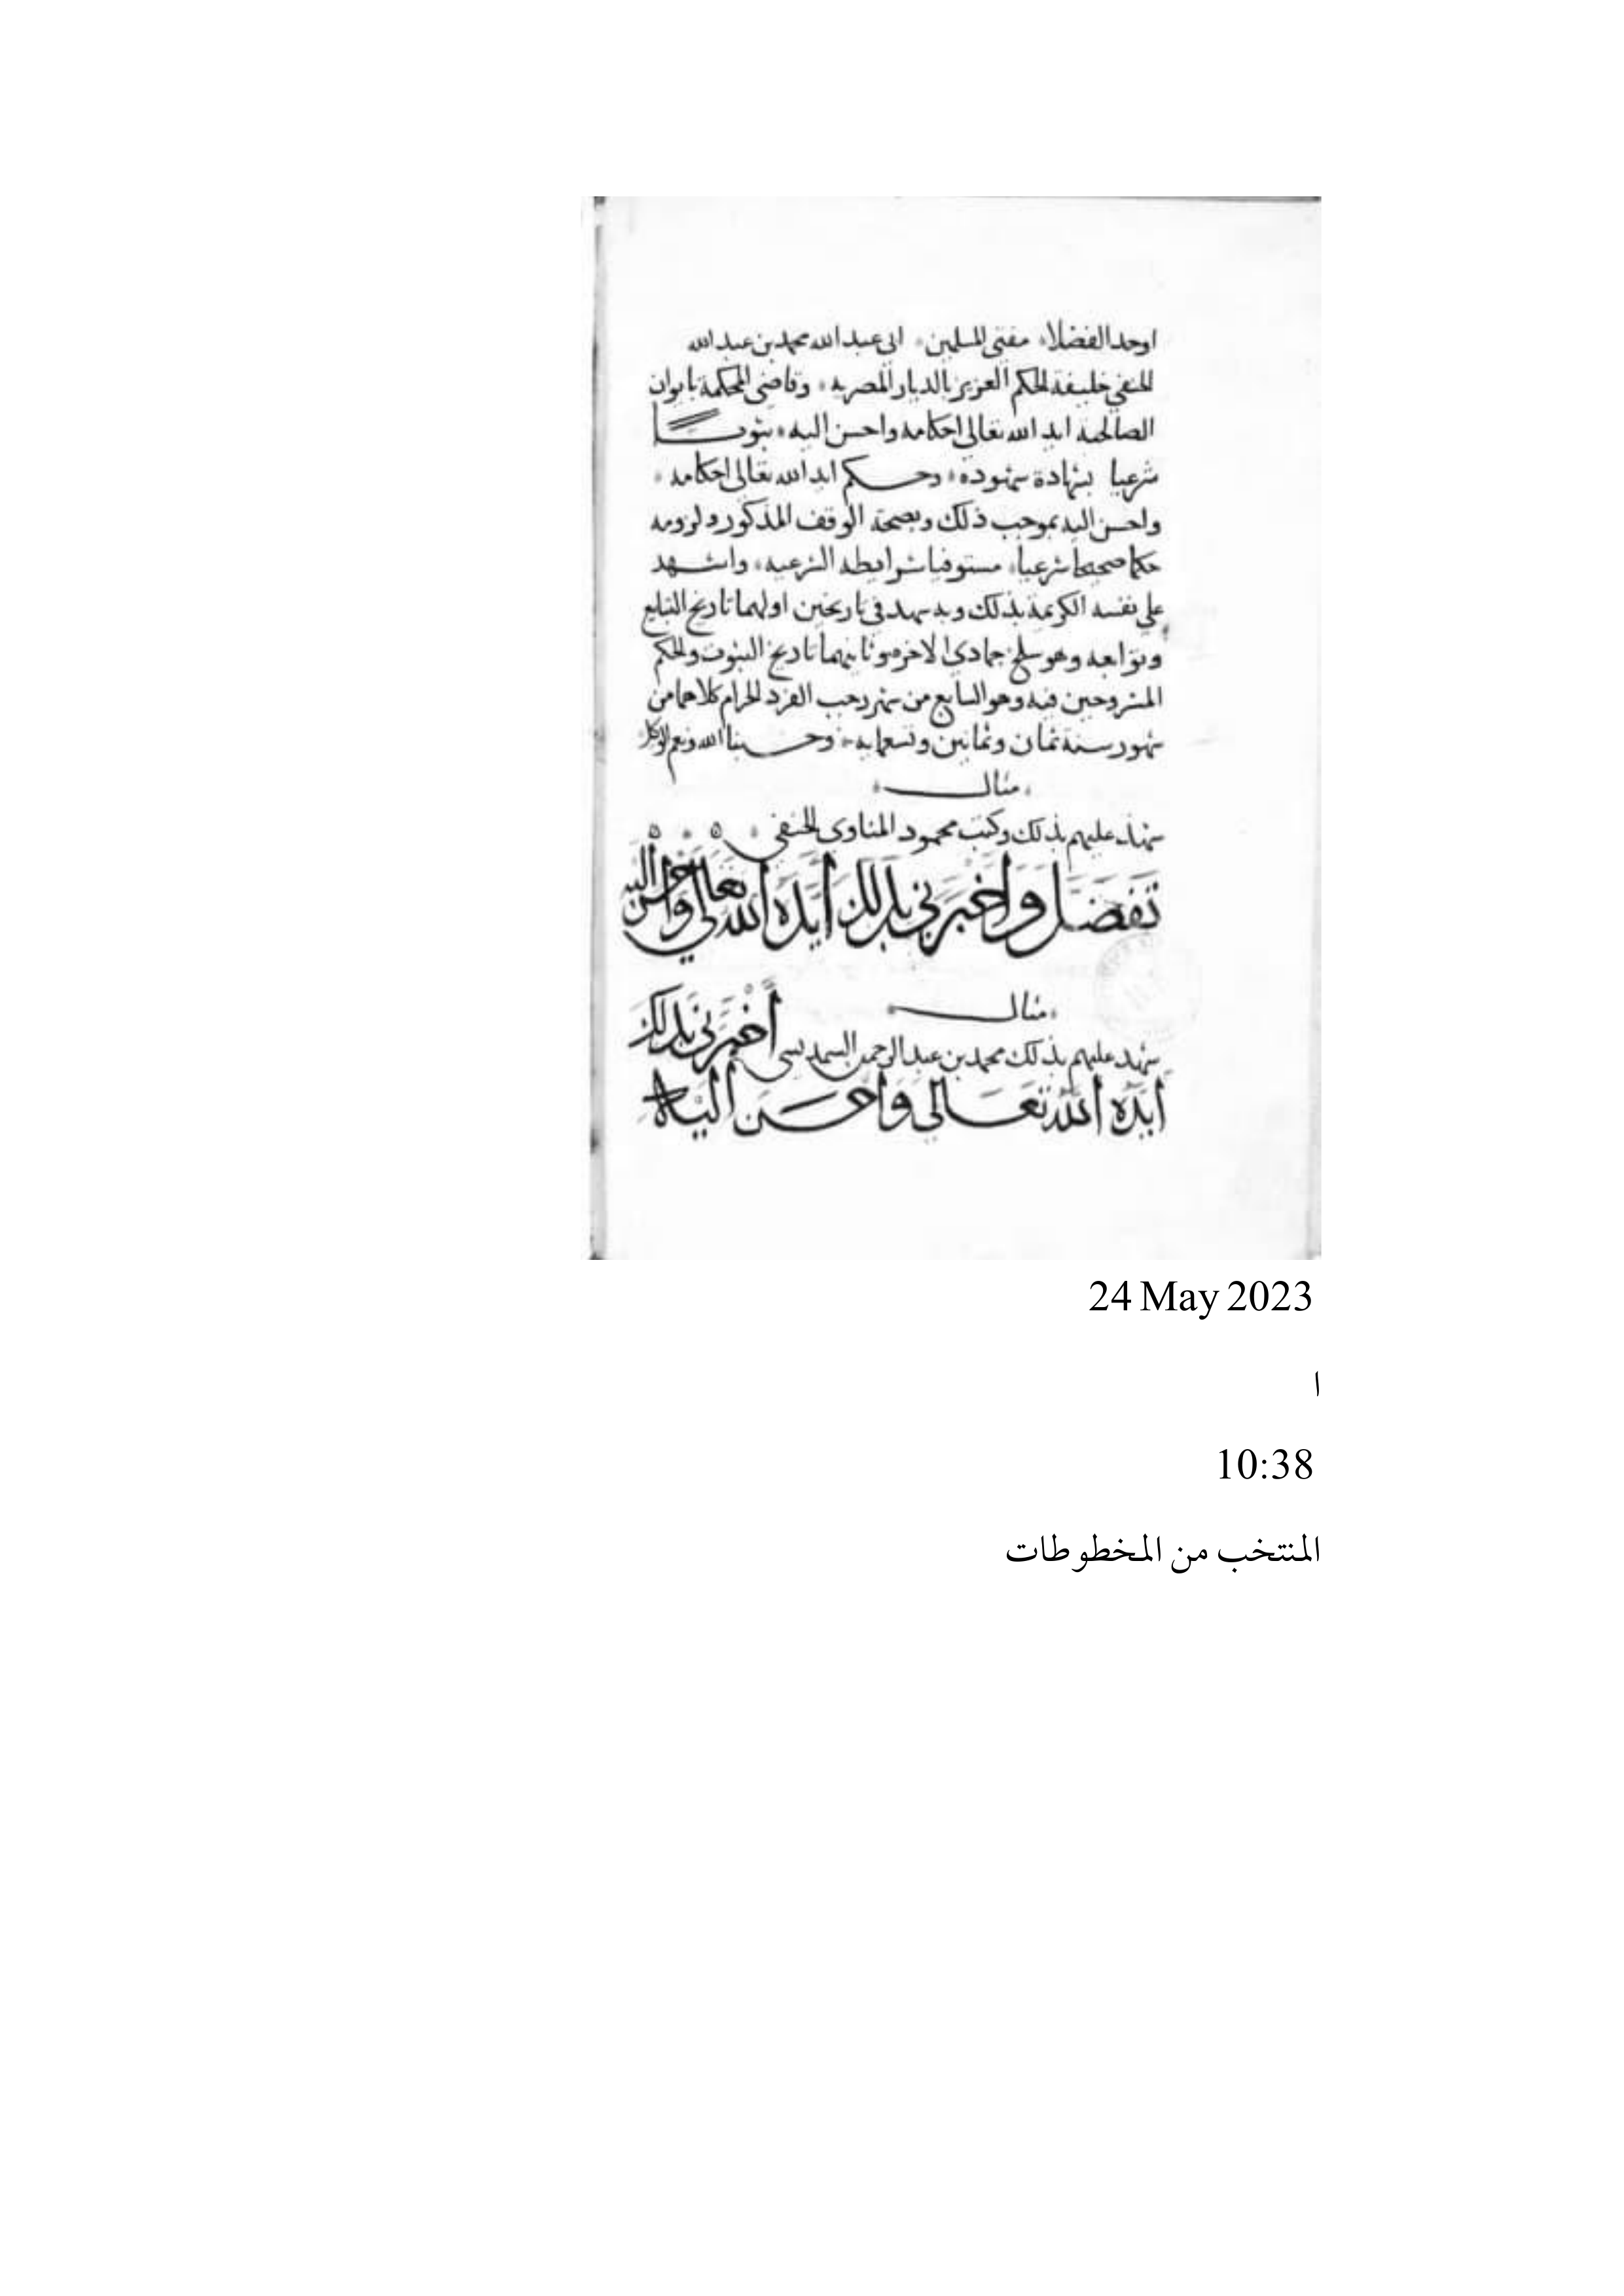 اوحد الفضلاء مفتى المسلمين ابى عبد الله محمد بن عبد الله
الحنفي خليفة الحكم العزيز بالديار المصريه وقاضى المحكمة بايوان
الصالحيه ايد الله تعالى احكامه واحسن اليه ثبوتــا
شرعيا بشهادة شهوده وحكم ايد الله تعالى احكامه
واحسن اليه بموجب ذلك وبصحة الوقف المذكور ولزومه
حكما صحيحا شرعيا مستوفيا شرايطه الشرعيه واشهد
على نفسه الكريمة بذلك وبه شهد في تاريخين اولهما تاريخ التبليغ
وتوابعه وهو سلخ جمادى الاخر وثانيهما تاريخ الثبوت والحكم
المشروحين فيه وهو السابع من شهر رجب الفرد الحرام كلاهما من
شهور سنة ثمان وثمانين وتسعمايه وحسبنا الله ونعم الوكيل
مثال
شهد عليهم بذلك وكتب محمود المناوى الحنفي
تَفَضَّل وَاخْبَرَنى بذلك أيّدَه الله تعالى واحسن اليه
مثال
شهد عليهم بذلك محمد بن عبد الرحمن السمديسى أخبرنى بذلك
أيّدَه الله تعَالى وَاحسَن اليه
24 May 2023
ا
10:38
المنتخب من المخطوطات